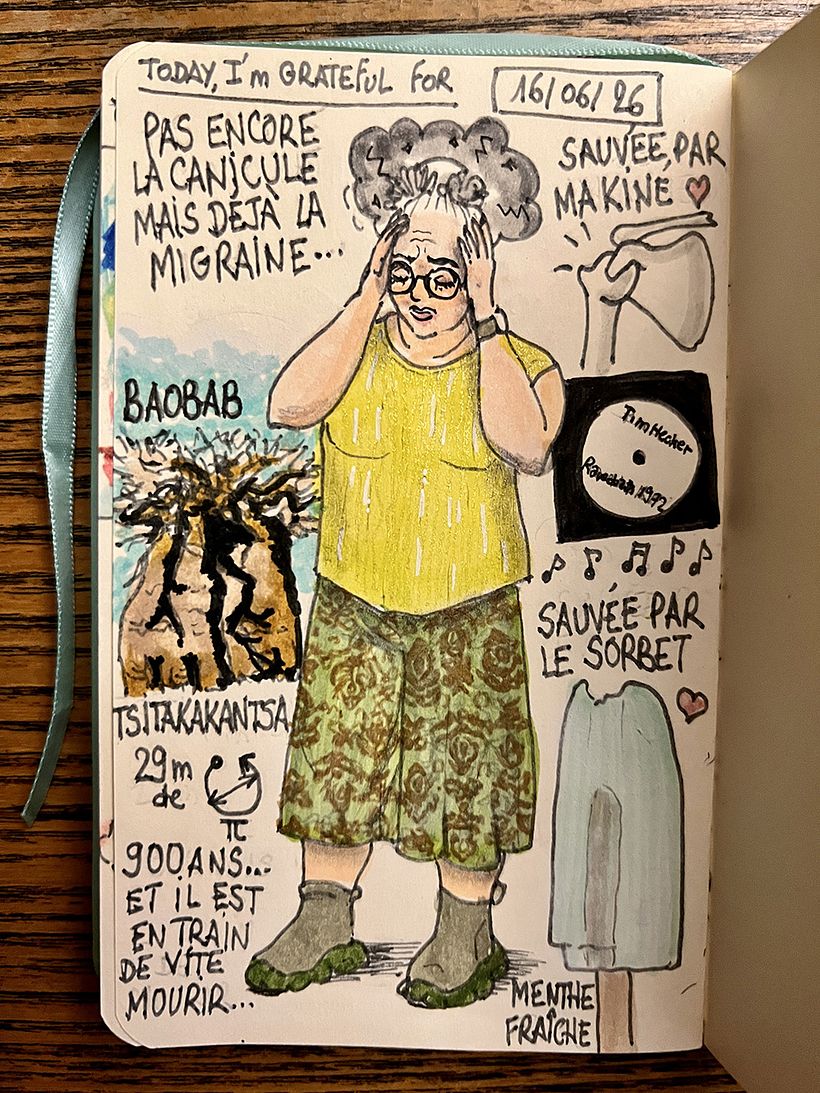 TODAY, I'm GRATEFUL FOR
16/06/26
PAS ENCORE
LA CANICULE
MAIS DÉJÀ LA
MIGRAINE...
SAUVÉE PAR
MA KINÉ
BAOBAB
Tim Hecker
1992
TSITAKAKANTSA
29m
de
π
900 ANS...
ET IL EST
EN TRAIN
DE VITE
MOURIR...
SAUVÉE PAR
LE SORBET
MENTHE
FRAÎCHE